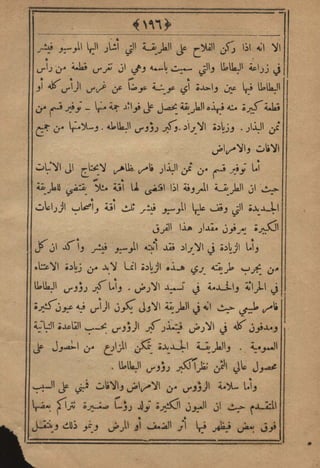 ﴿ ١٩٦ ﴾
الا انه اذا ركن الفلاح على الطريقة التي أشار اليها الموسيو فيشر
في زراعة البطاطا والتي سميت باسمه وهي ان تغرس قطعة من رأس
البطاطا فيها عين واحدة أي عوينة عوضاً عن غرس الرأس كله أو
قطعة كبيرة منه فبهذه الطريقة يحصل على فوائد جمة منها - توفير قسم من
ثمن البذار . وزيادة الايراد . وكبر رؤوس البطاطه . وسلامتها من جميع
الافات والامراض
أما توفير قسم من ثمن البذار فامر ظاهر لايحتاج الى الاثبات
حيث ان الطريقة المعروفة اذا اقتضى لها أقة مثلاً يقتضي للطريقة
الجديدة التي وقف عليها الموسيو فيشر ثلث أقة وأصحاب الزراعات
الكبيرة يعرفون مقدار هذا الفرق
وأما الزيادة في الايراد فقد أثبته الموسيو فيشر وأكد ان كل
من يجرب طريقته يرى هذه الزيادة انما لابد من زيادة الاعتناء
في الحراثة والخدمة في تسميد الارض . وأما كبر رؤوس البطاطا
فامر طبيعي حيث انه في الطريقة الاولى يكون الرأس فيه عيون كثيرة
ومدفون كله في الارض فيتعذر كبر الرؤوس بحسب القاعدة النباتية
العمومية . والطريقة الجديدة يتمكن المزارع من الحصول على
محصول عالي الثمن نظراً لكبر رؤوس البطاطا .
وأما سلامة الرؤوس من الامراض والافات فمبني على السبب
المتقدم حيث ان العيون الكثيرة تولد رؤساً صغيرة تتراكم بعضها
فوق بعض فيظهر فيها أثر الضعف أو المرض ونمو ذلك وينتقل